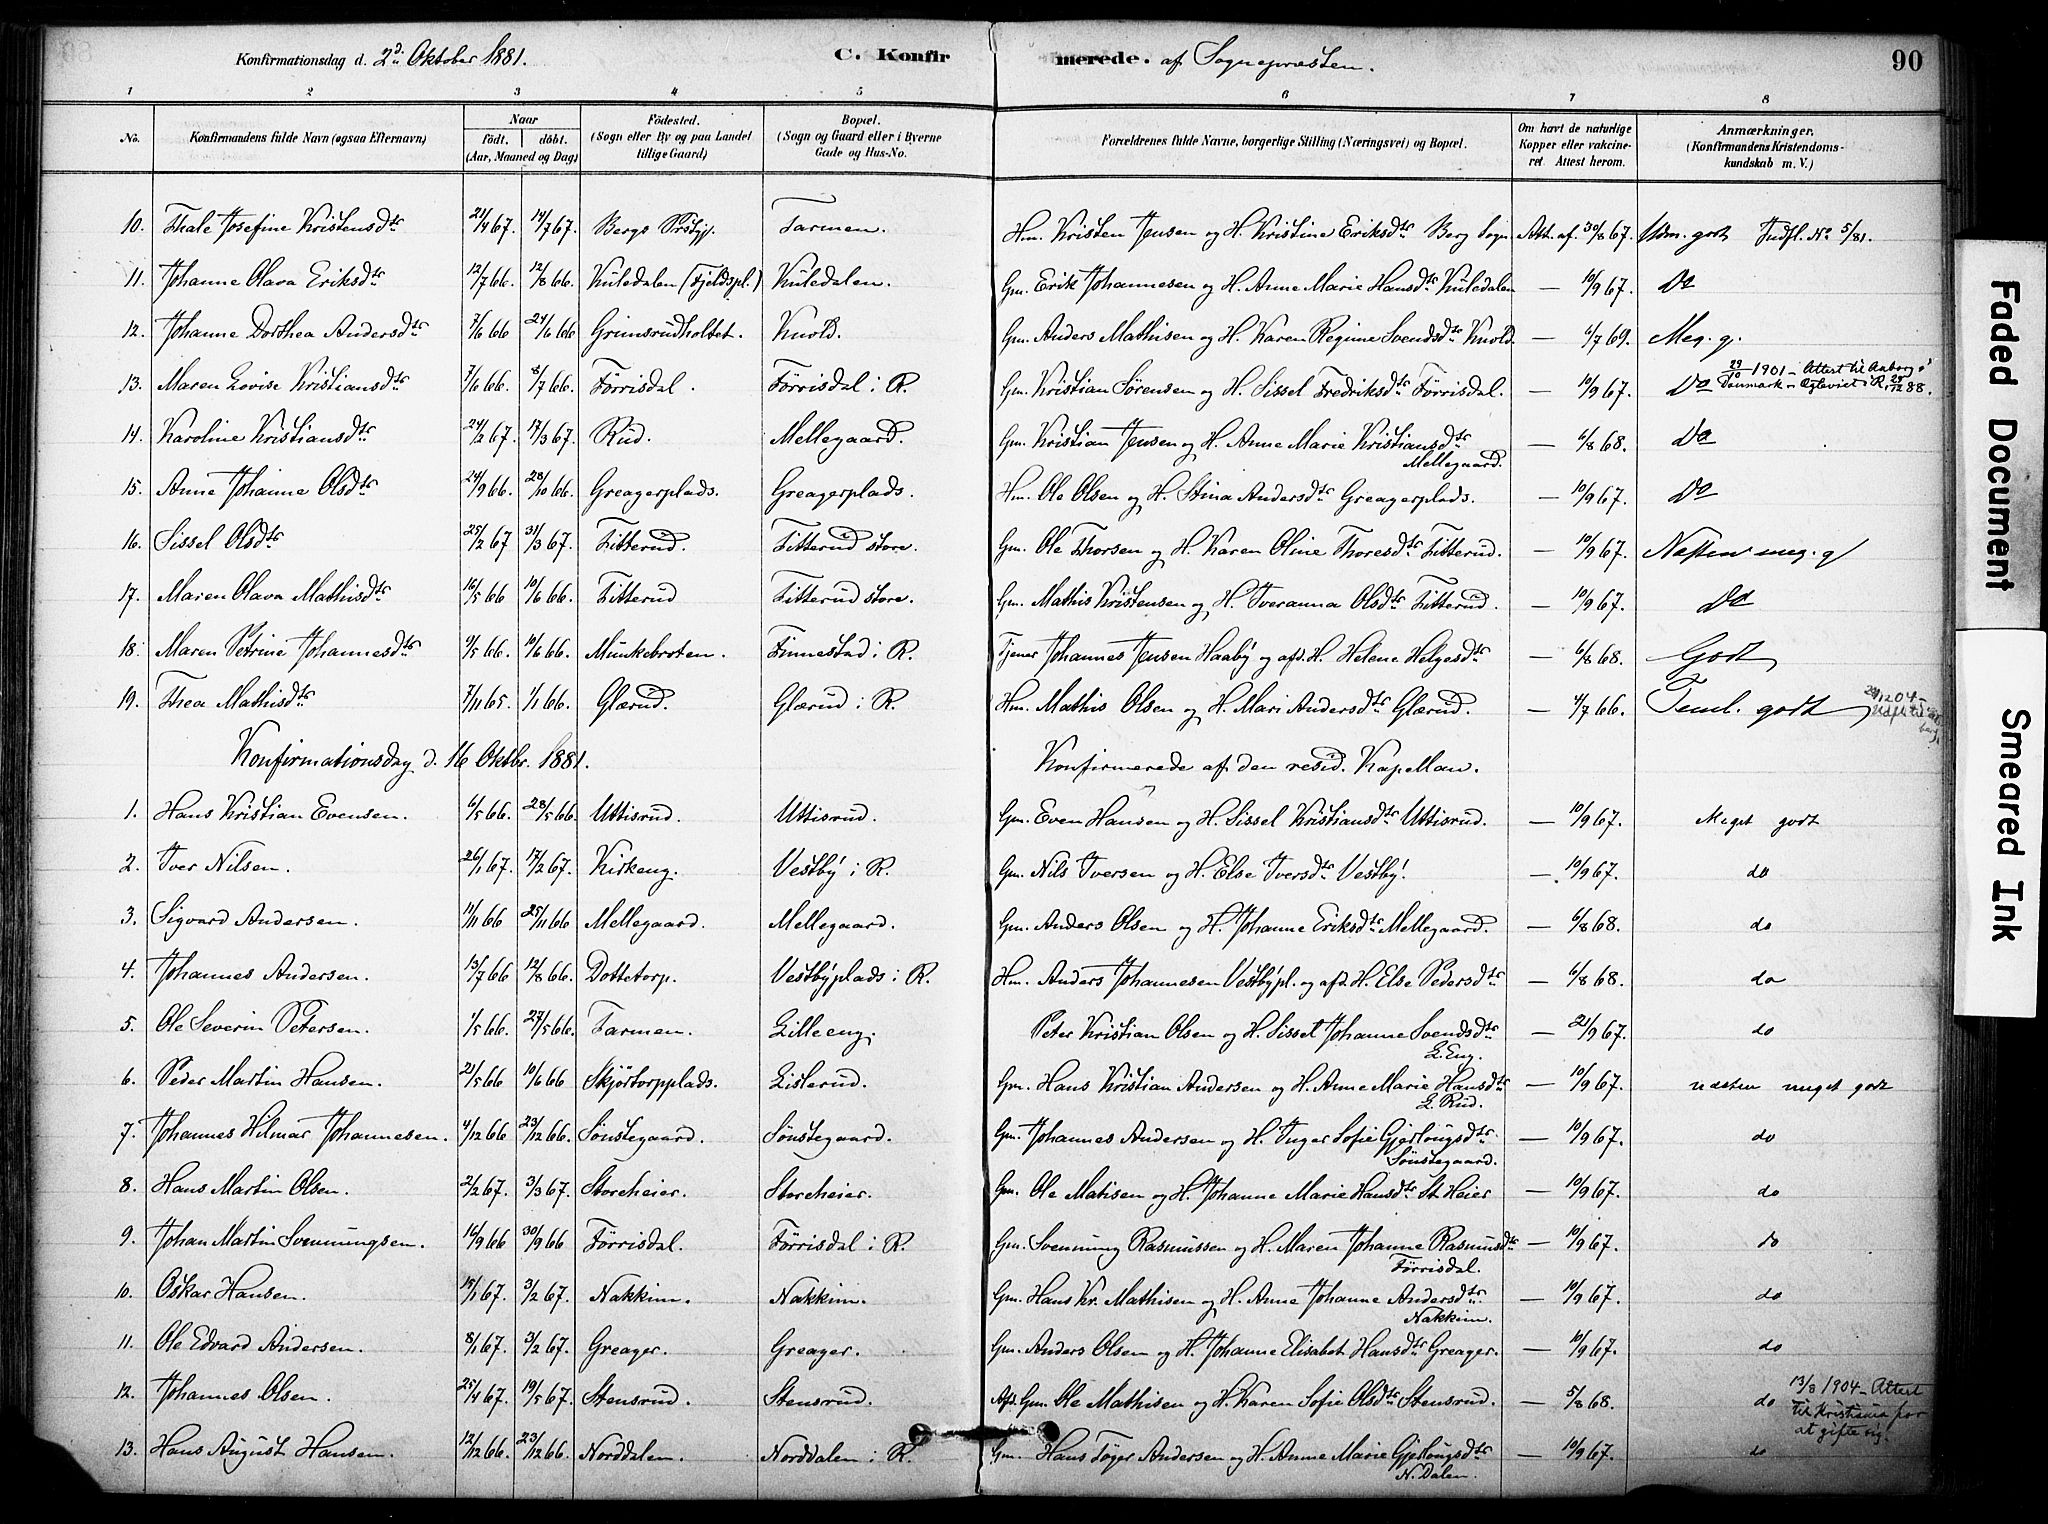 Konfirmationsdag d. 2d Oktober 1881. C. Konfirmerede. af Sognepræsten. 90
1 2 3 4 5 6 7 8
No. Konfirmandens fulde Navn (ogsaa Efternavn) Naar født. døbt. (Aar, Maaned og Dag) Fødested. (Sogn eller By og paa Landet tillige Gaard) Bopæl. (Sogn og Gaard eller i Byerne Gade og Hus-No. Forældrenes fulde Navne, borgerlige Stilling (Næringsvei) og Bopæl. Om havt de naturlige Kopper eller vaccineret Attest herom. Anmærkninger. (Konfirmandens Kristendomskundskab m. V.)
10. Thale Josefine Kristensdtr 21/4 67. 14/7 67. Bergs Prstgj. Tarmen. Hm. Kristen Jensen og H. Kristine Eriksdtr Berg Sogn. Att. af. 30/8 67. Udm. godt Indfl. No 5/81.
11. Johanne Olava Eriksdtr 12/7 66. 12/8 66. Kuledalen (Fjeldspl.) Kuledalen. Gm. Erik Johannesen og H. Anne Marie Hansdtr Kuledalen — 10/9 67. Do
12. Johanne Dorthea Andersdtr 7/6 66 24/6 66. Grimsrudholtet. Knold. Gm. Anders Mathisen og H. Karen Regine Svendsdtr Knold. — 6/7 69. Meg. g.
13. Maren Lovise Kristiansdtr 7/6 66. 8/7 66. Førrisdal. Førrisdal i R. Gm. Kristian Sørensen og H. Sissel Fredriksdtr Førrisdal. — 10/9 67. Do 29/10 1901 - Attest til Aaborg i Danmark - Ægteviet i R. 28/12 88.
14. Karoline Kristiansdtr 24/2 67. 17/3 67. Rud. Mellegaard. Gm. Kristian Jensen og H. Anne Marie Kristiansdtr Mellegaard. — 6/8 68. Do
15. Anne Johanne Olsdtr 24/9 66. 28/10 66. Greagerplads. Greagerplads. Hm. Ole Olsen og H. Stina Andersdtr Greagerplads. — 10/9 67. Do
16. Sissel Olsdtr 25/2 67 31/3 67. Titterud. Titterud store. Gm. Ole Thorsen og H. Karen Oline Thoresdtr Titterud. — 10/9 67. Næsten meg. g
17. Maren Olava Mathisdtr 16/5 66 10/6 66. Titterud Titterud store. Gm. Mathis Kristensen og H. Iveranna Olsdtr Titterud. — 10/9 67. Do
18. Maren Petrine Johannesdtr 9/5 66. 10/6 66. Munkebroten. Finnestad i R. Tjener Johannes Jensen Haaby og afd. H. Helene Helgesdtr — 6/8 68. Godt
19. Thea Mathisdtr 7/11 65. 1/1 66. Glærud. Glærud i R. Hm. Mathis Olsen og H. Mari Andersdtr Glærud. — 4/7 66. Teml. godt
Konfirmationsdag d. 16 Oktbr. 1881. Konfirmerede af den resid. Kapellan.
1. Hans Kristian Evensen. 6/5 66. 28/5 66. Uttisrud. Uttisrud. Gm. Even Hansen og H. Sissel Kristiansdtr Uttisrud. — 10/9 67. Meget godt
2. Iver Nilsen. 26/1 67. 17/2 67. Kirkeng. Vestby i R. Gm. Nils Iversen og H. Else Iversdtr Vestby. — 10/9 67. do
3. Sigvard Andersen. 11/11 66 25/11 66 Mellegaard. Mellegaard. Gm. Anders Olsen og H. Johanne Eriksdtr Mellegaard. — 6/8 68. do
4. Johannes Andersen. 13/7 66 12/8 66. Dottetorp. Vestbyplads i R. Hm. Anders Johannesen Vestbypl. og afd. H. Else Pedersdtr — 6/8 68. do
5. Ole Severin Petersen. 1/5 66. 27/5 66. Tarmen. Lilleeng. Peter Kristian Olsen og H. Sissel Johanne Svendsdtr L. Eng. — 21/9 67. do
6. Peder Martin Hansen. 21/5 66 10/6 66 Skjørtorpplads. Lislerud. Gm. Hans Kristian Andersen og H. Anne Marie Hansdtr L. Rud. — 10/9 67. næsten meget godt
7. Johannes Hilmar Johannesen. 4/12 66 23/12 66. Sønstegaard. Sønstegaard. Gm. Johannes Andersen og H. Inger Sofie Gjerlougsdtr Sønstegaard. — 10/9 67. do
8. Hans Martin Olsen. 2/2 67. 3/3 67. Storeheier. Storeheier. Gm. Ole Matisen og H. Johanne Marie Hansdtr St. Heier — 10/9 67. do
9. Johan Martin Svenningsen. 16/9 66 30/9 66 Førrisdal. Førrisdal i R. Gm. Svenning Rasmussen og H. Maren Johanne Rasmusdtr Førrisdal. — 10/9 67. do
10. Oskar Hansen. 15/1 67. 3/2 67. Nakkim. Nakkim. Gm. Hans Kr. Mathisen og H. Anne Johanne Andersdtr Nakkim. — 10/9 67. do
11. Ole Edvard Andersen. 8/1 67. 3/2 67. Greager. Greager. Gm. Anders Olsen og H. Johanne Elisabet Hansdtr Greager. — 10/9 67. do
12. Johannes Olsen. 25/4 67. 19/5 67. Stensrud. Stensrud. Afs. Gm. Ole Mathisen og H. Karen Sofie Olsdtr Stensrud. — 5/8 68. do 13/8 1904 - Attest til Kristiania for at gifte sig.
13. Hans August Hansen. 12/12 66. 23/12 66. Norddalen. Norddalen i R. Gm. Hans Tøger Andersen og H. Anne Marie Gjerlougsdtr N. Dalen. — 10/9 67. do
Faded Document
Smeared Ink